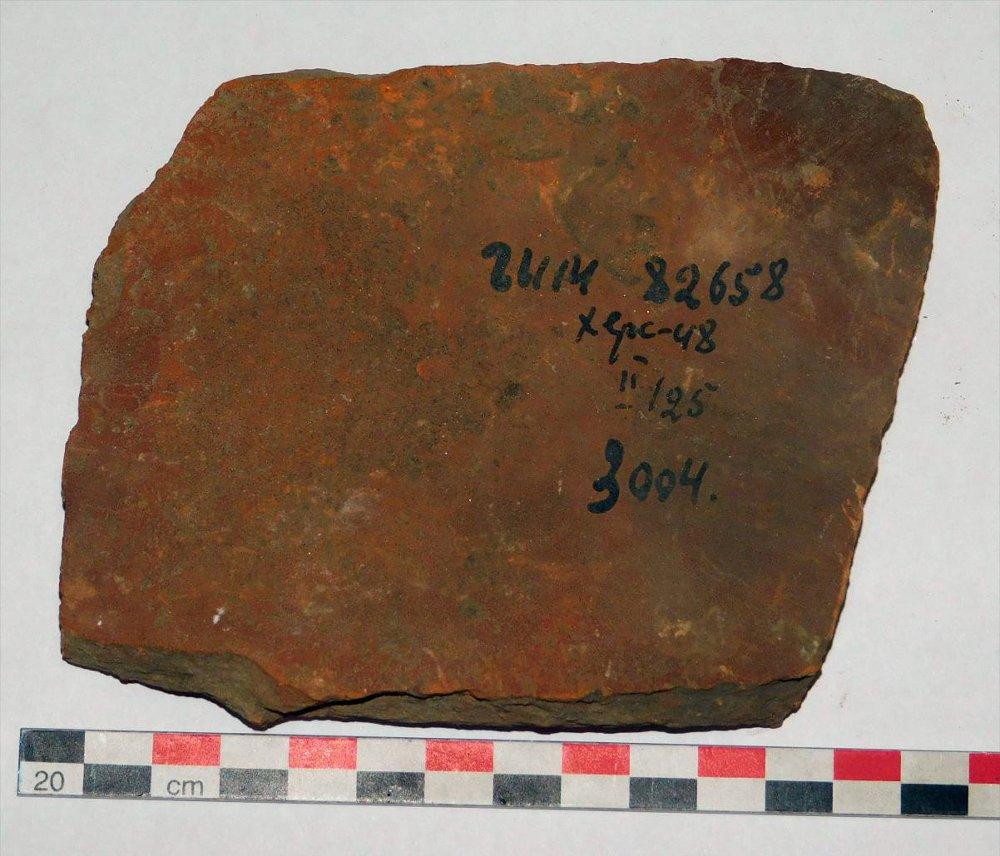 ГИМ 82658
Херс-48
II/125
3004.
20 cm